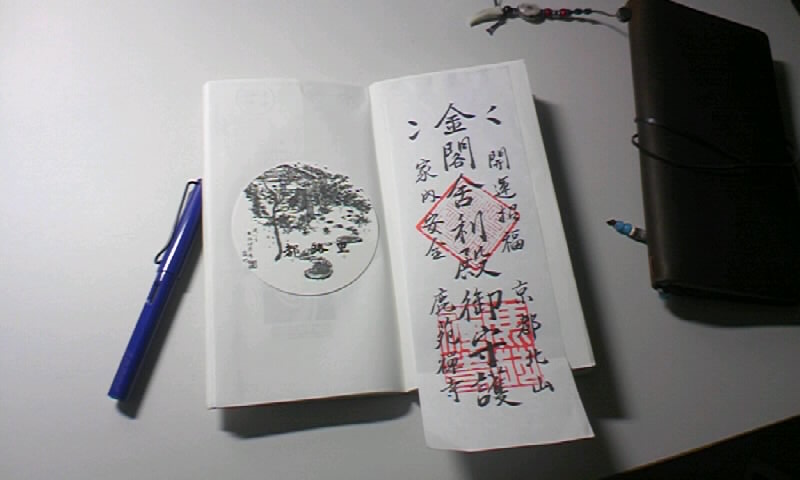 開運招福
京都北山
金閣舎利殿御守護
家内安全
鹿苑禅寺
都路里